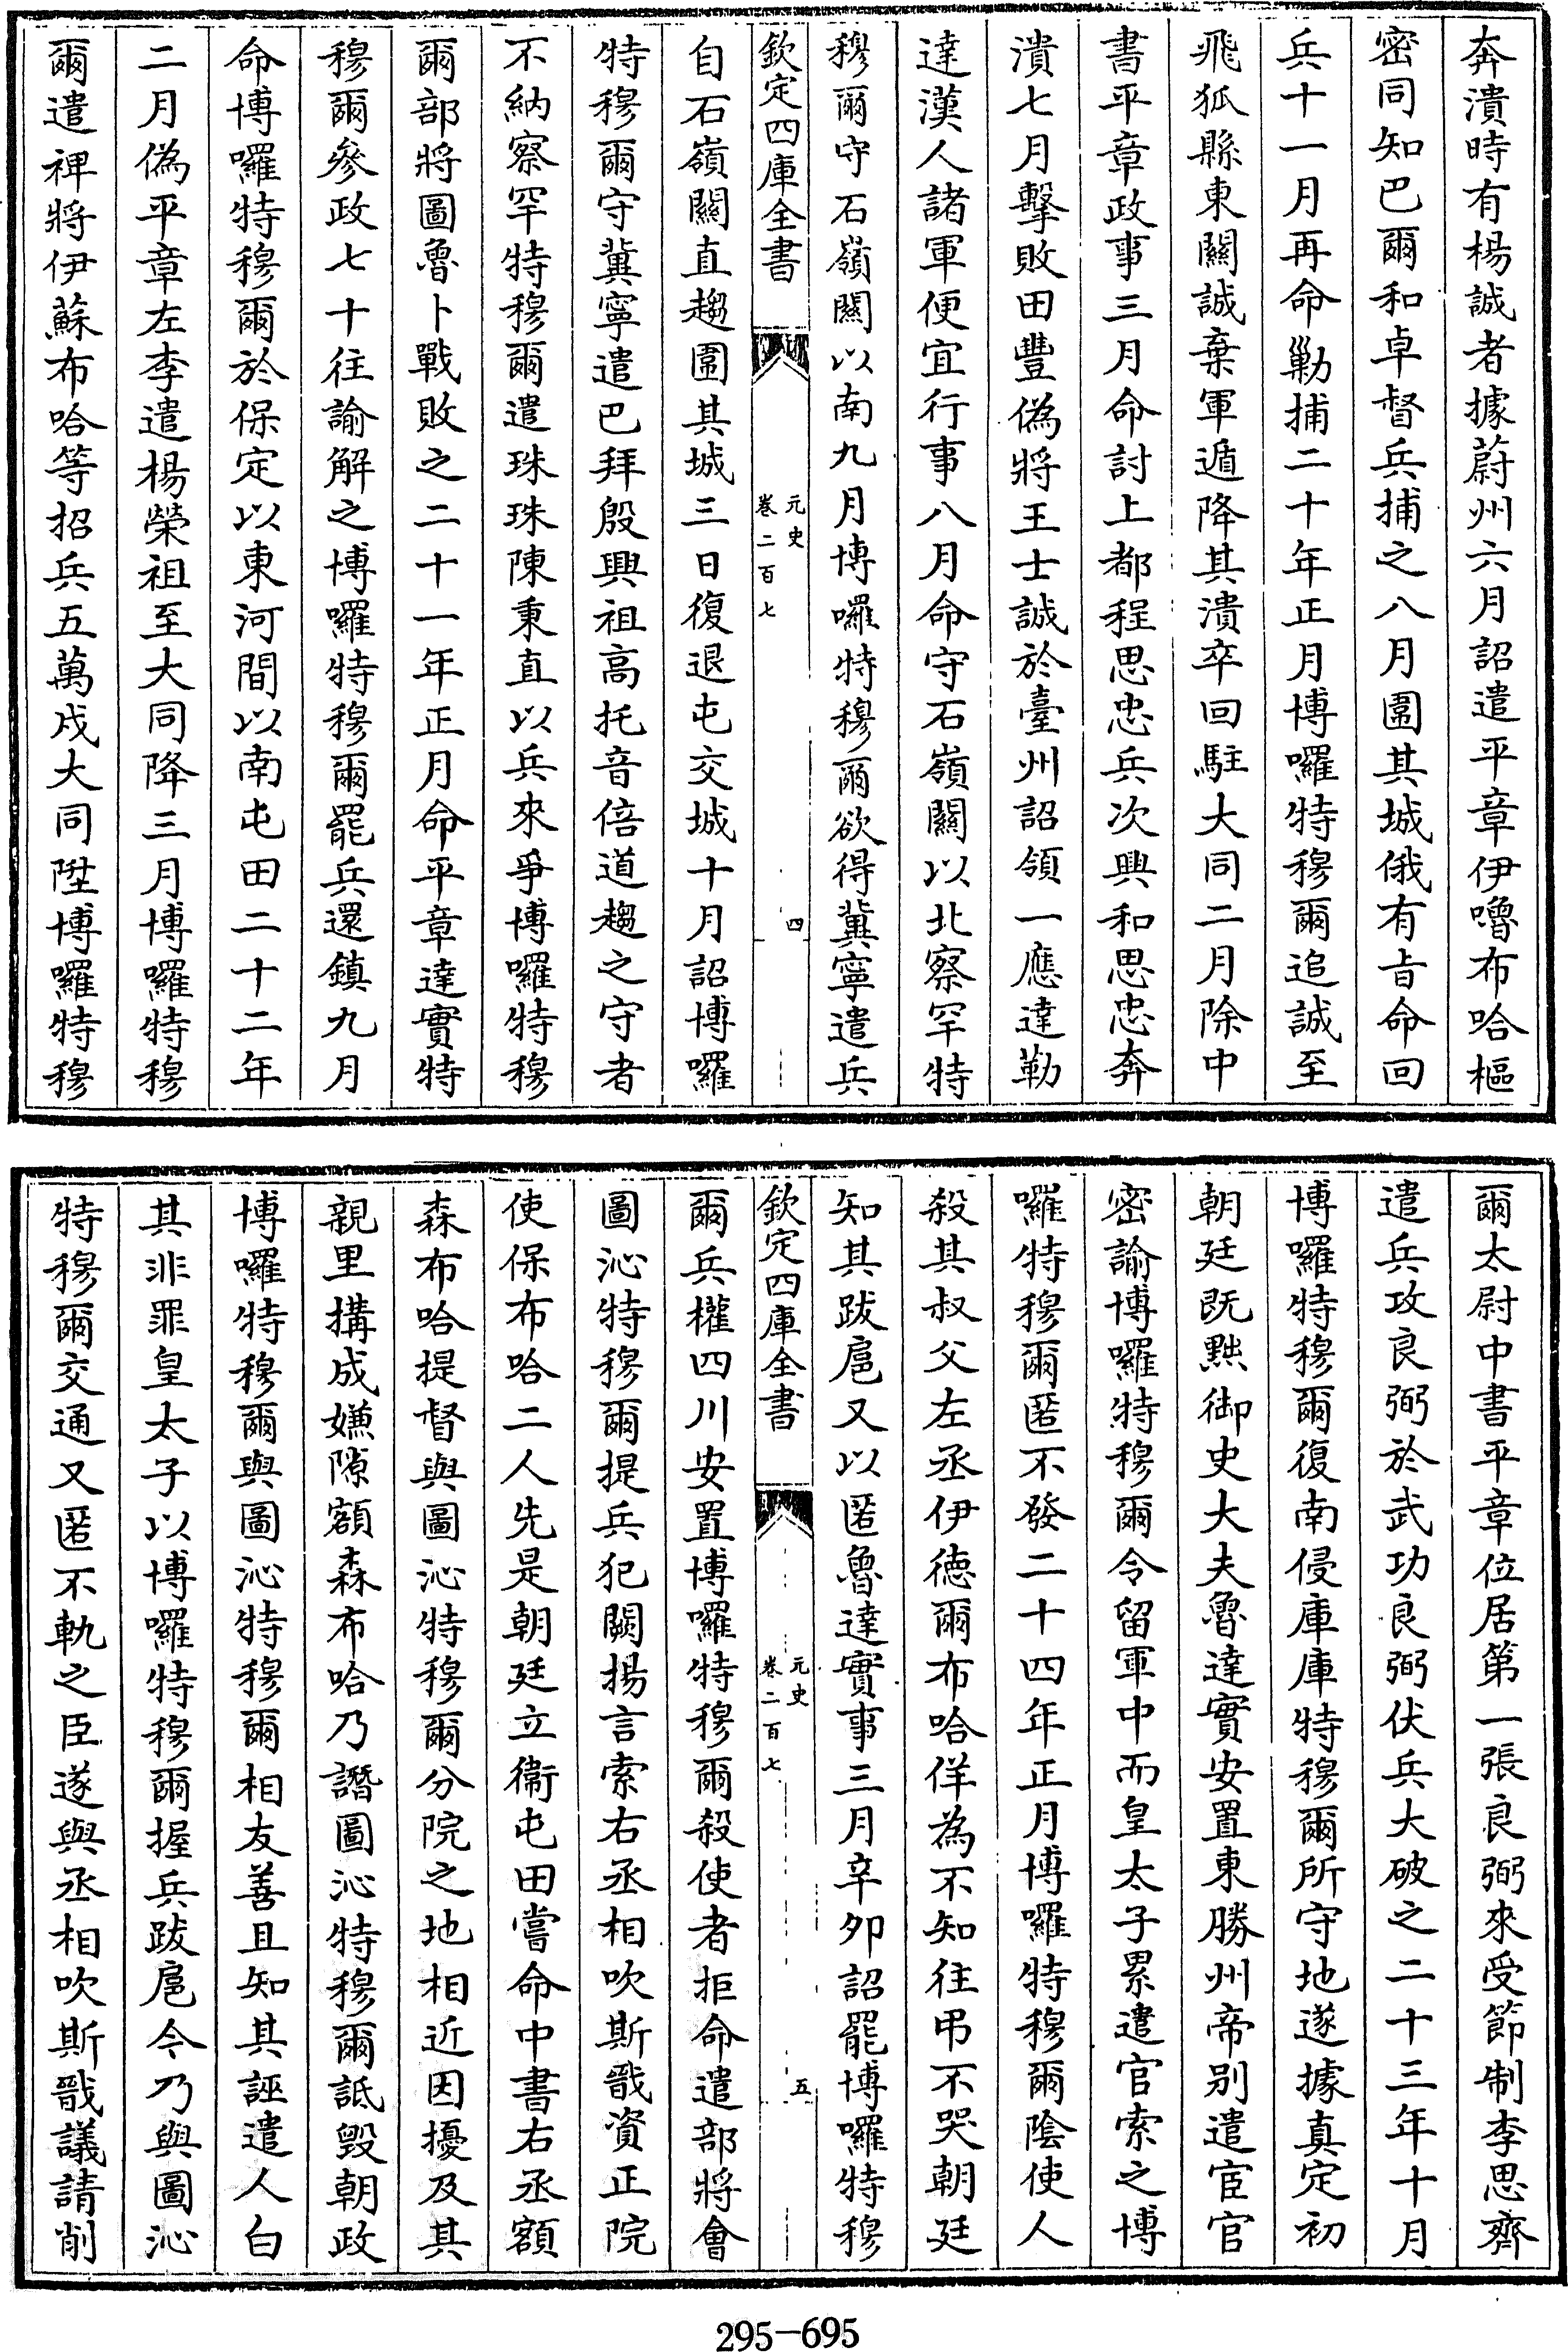 奔潰時有楊誠者據蔚州六月詔遣平章伊嚕布哈樞
密同知巴爾和卓督兵捕之八月圍其城俄有旨命回
兵十一月再命勦捕二十年正月博囉特穆爾追誠至
飛狐縣東關誠棄軍遁降其潰卒回駐大同二月除中
書平章政事三月命討上都程思忠兵次興和思忠奔
潰七月擊敗田豐偽將王士誠於臺州詔領一應達勒
達漢人諸軍便宜行事八月命守石嶺關以北察罕特
穆爾守石嶺關以南九月博囉特穆爾欲得冀寧遣兵
欽定四庫全書
元史
卷二百七
四
自石嶺關直趨圍其城三日復退屯交城十月詔博囉
特穆爾守冀寧遣巴拜殷興祖高托音倍道趨之守者
不納察罕特穆爾遣珠珠陳秉直以兵來爭博囉特穆
爾部將圖魯卜戰敗之二十一年正月命平章達實特
穆爾參政七十往諭解之博囉特穆爾罷兵還鎮九月
命博囉特穆爾於保定以東河間以南屯田二十二年
二月偽平章左李遣楊榮祖至大同降三月博囉特穆
爾遣裨將伊蘇布哈等招兵五萬戍大同陞博囉特穆
爾太尉中書平章位居第一張良弼來受節制李思齊
遣兵攻良弼於武功良弼伏兵大破之二十三年十月
博囉特穆爾復南侵庫庫特穆爾所守地遂據真定初
朝廷既黜御史大夫魯達實安置東勝州帝别遣宦官
密諭博囉特穆爾令留軍中而皇太子累遣官索之博
囉特穆爾匿不發二十四年正月博囉特穆爾陰使人
殺其叔父左丞伊德爾布哈佯為不知往弔不哭朝廷
知其跋扈又以匿魯達實事三月辛卯詔罷博囉特穆
欽定四庫全書
元史
卷二百七
五
爾兵權四川安置博囉特穆爾殺使者拒命遣部將會
圖沁特穆爾提兵犯闕揚言索右丞相吹斯戬資正院
使保布哈二人先是朝廷立衞屯田嘗命中書右丞額
森布哈提督與圖沁特穆爾分院之地相近因擾及其
親里搆成嫌隙額森布哈乃譖圖沁特穆爾詆毁朝政
博囉特穆爾與圖沁特穆爾相友善且知其誣遣人白
其非罪皇太子以博囉特穆爾握兵跋扈今乃與圖沁
特穆爾交通又匿不軌之臣遂與丞相吹斯戬議請削
295-695